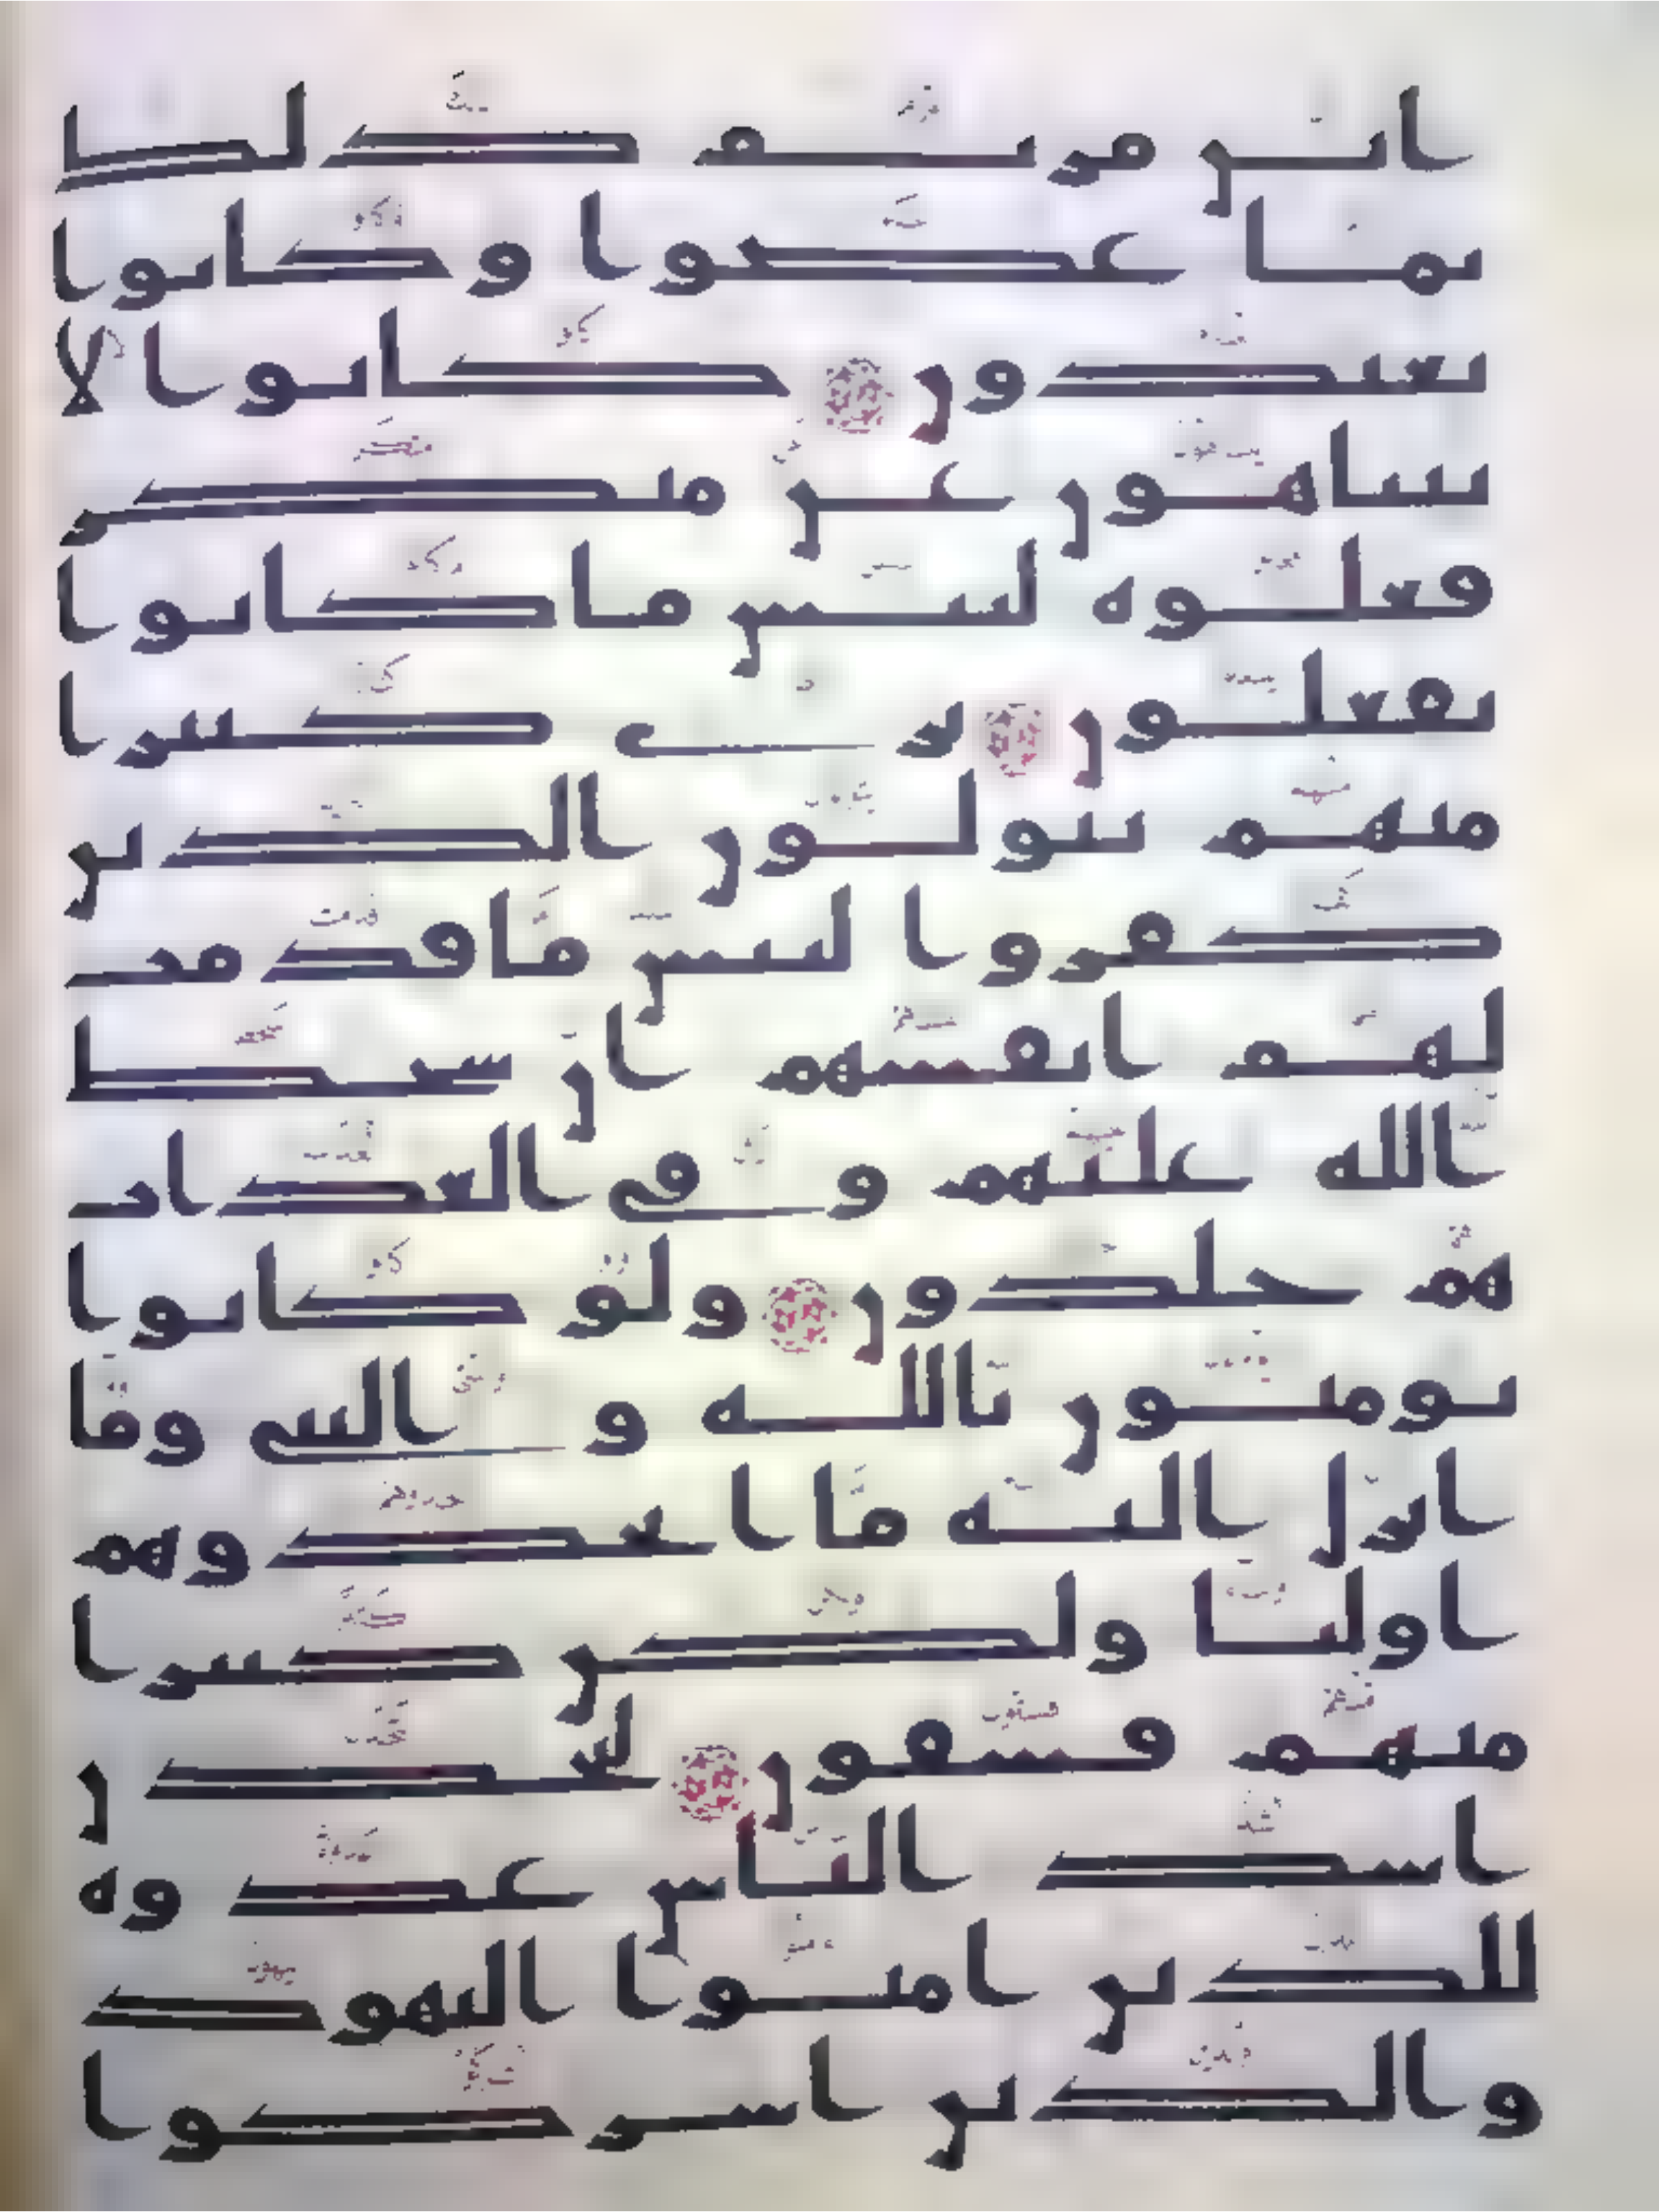 ابن مريم ذلك
بما عصوا وكانوا
يعتدون كانوا لا
يتناهون عن منكر
فعلوه لبئس ما كانوا
يفعلون ترى كثيرا
منهم يتولون الذين
كفروا لبئس ما قدمت
لهم انفسهم ان سخط
الله عليهم وفي العذاب
هم خلدون ولو كانوا
يومنون بالله والنبي وما
انزل اليه ما اتخذوهم
اوليا ولكن كثيرا
منهم فسقون لتجدن
اشد الناس عدوه
للذين امنوا اليهود
والذين اشركوا